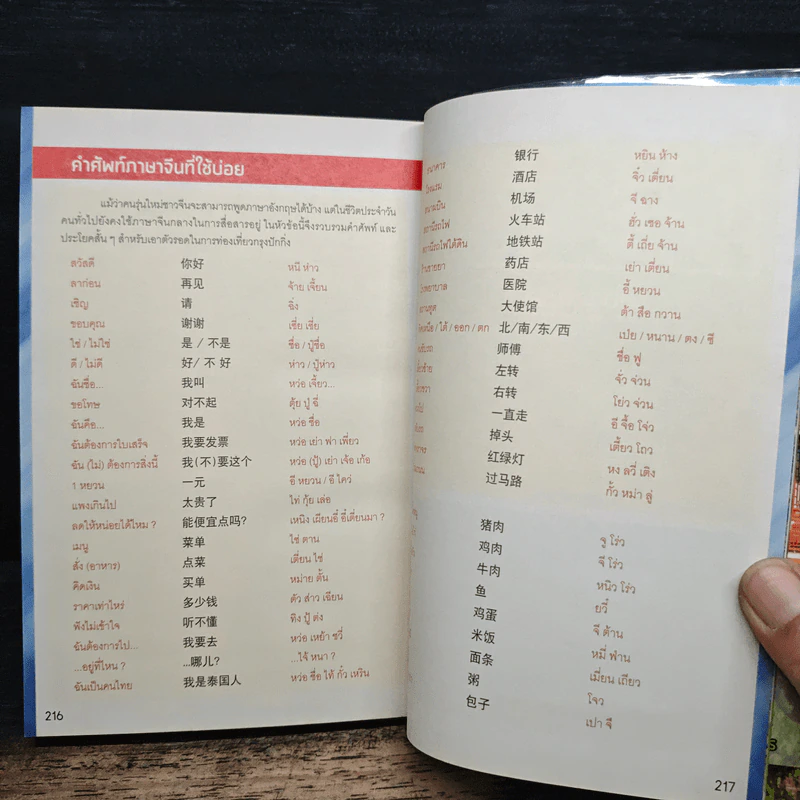 คำศัพท์ภาษาจีนที่ใช้บ่อย
แม้ว่าคนรุ่นใหม่ชาวจีนจะสามารถพูดภาษาอังกฤษได้บ้าง แต่ในชีวิตประจำวัน
คนทั่วไปยังคงใช้ภาษาจีนกลางในการสื่อสารอยู่ ในหัวข้อนี้จึงรวบรวมคำศัพท์ และ
ประโยคสั้น ๆ สำหรับเอาตัวรอดในการท่องเที่ยวกรุงปักกิ่ง
สวัสดี 你好 หนี ห่าว
ลาก่อน 再见 จ้าย เจี้ยน
เชิญ 请 ฉิ่ง
ขอบคุณ 谢谢 เซี่ย เซี่ย
ใช่ / ไม่ใช่ 是 / 不是 ซื่อ / ปู๋ซื่อ
ดี / ไม่ดี 好/ 不 好 ห่าว / ปู้ห่าว
ฉันชื่อ... 我叫 หว่อ เจี้ยว...
ขอโทษ 对不起 ตุ้ย ปู้ ฉี่
ฉันคือ... 我是 หว่อ ซื่อ
ฉันต้องการใบเสร็จ 我要发票 หว่อ เย่า ฟา เพี่ยว
ฉัน (ไม่) ต้องการสิ่งนี้ 我(不)要这个 หว่อ (ปู้) เย่า เจ้อ เก้อ
1 หยวน 一元 อี หยวน / อี ไคว่
แพงเกินไป 太贵了 ไท่ กุ้ย เล่อ
ลดให้หน่อยได้ไหม ? 能便宜点吗? เหนิง เผียนอี๋ อี๋เตี่ยนมา ?
เมนู 菜单 ไช่ ตาน
สั่ง (อาหาร) 点菜 เตี่ยน ไช่
คิดเงิน 买单 หม่าย ตั้น
ราคาเท่าไหร่ 多少钱 ตัว ส่าว เฉียน
ฟังไม่เข้าใจ 听不懂 ทิง ปู้ ต่ง
ฉันต้องการไป... 我要去 หว่อ เหย้า ชวี่
...อยู่ที่ไหน ? ...哪儿? ...ไจ้ หนา ?
ฉันเป็นคนไทย 我是泰国人 หว่อ ซื่อ ไท้ กั๋ว เหริน
216
银行 หยิน ห้าง
酒店 จิ๋ว เตี่ยน
机场 จี ฉาง
火车站 ฮั่ว เชอ จ้าน
地铁站 ตี้ เถี่ย จ้าน
药店 เย่า เตี่ยน
医院 อี้ หยวน
大使馆 ต้า สือ กวาน
/ ใต้ / ออก / ตก 北/南/东/西 เป่ย / หนาน / ตง / ซี
师傅 ซื่อ ฟู
左转 จั่ว จ่วน
右转 โย่ว จ่วน
一直走 อี จื๋อ โจ่ว
掉头 เตี้ยว โถว
红绿灯 หง ลวี่ เติง
过马路 กั้ว หม่า ลู่
猪肉 จู โร่ว
鸡肉 จี โร่ว
牛肉 หนิว โร่ว
鱼 ยวี๋
鸡蛋 จี ต้าน
米饭 หมี่ ฟ่าน
面条 เมี่ยน เถียว
粥 โจว
包子 เปา จึ
217